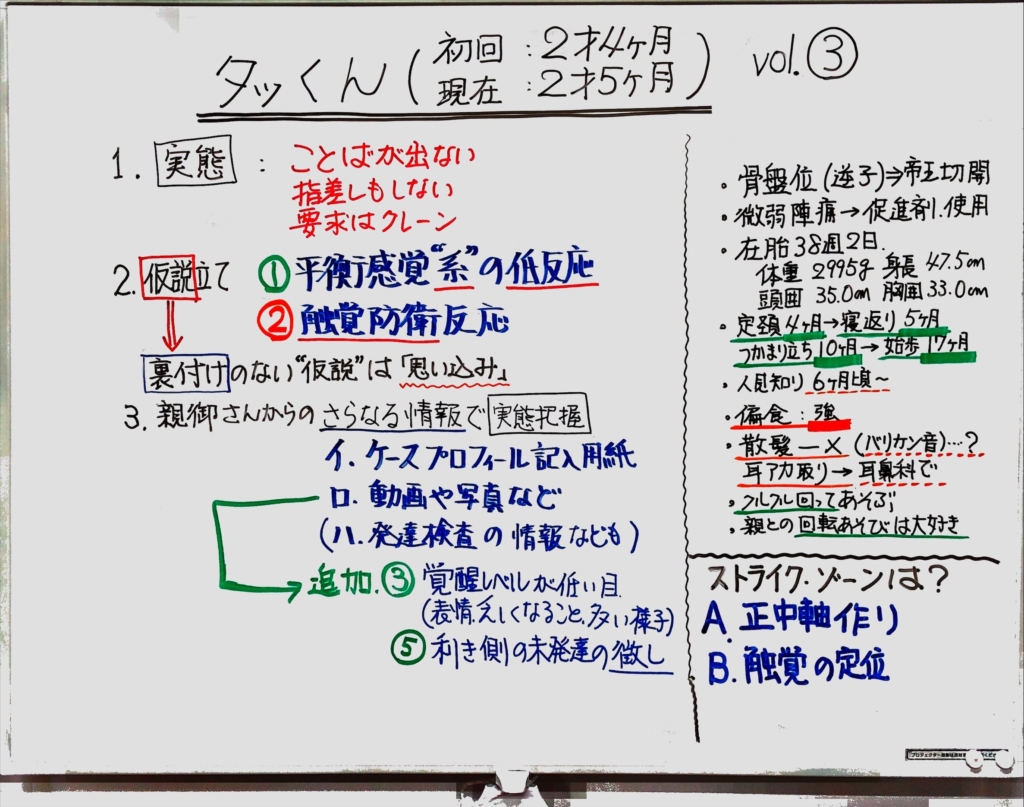 タッくん(初回:2才4ヶ月
現在:2才5ヶ月) vol.③
1. 実態 : ことばが出ない
指差しもしない
要求はクレーン
2. 仮説立て ①平衡感覚“系”の低反応
②触覚防衛反応
裏付けのない“仮説”は「思い込み」
3. 親御さんからのさらなる情報で実態把握
イ. ケースプロフィール記入用紙
ロ. 動画や写真など
(ハ. 発達検査の情報なども)
追加. ③ 覚醒レベルが低い目
(表情、乏しくなること、多い様子)
⑤ 利き側の未発達の徴し
・骨盤位(逆子)⇒帝王切開
・微弱陣痛→促進剤.使用
・在胎38週2日.
体重 2995g 身長 47.5cm
頭囲 35.0cm 胸囲 33.0cm
・定頚4ヶ月→寝返り5ヶ月
つかまり立ち10ヶ月→始歩17ヶ月
・人見知り 6ヶ月頃~
・偏食:強
・散髪-× (バリカン音)…?
耳アカ取り→耳鼻科で
・クルクル回ってあそぶ
・親との回転あそびは大好き
ストライク.ゾーンは?
A. 正中軸作り
B. 触覚の定位